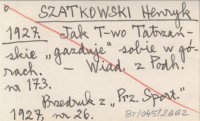 SZATKOWSKI Henryk
1927. Jak T-wo Tatrzań-
skie „gazduje" sobie w gó-
rach. – Wiad. z Podh.
nr 173.
Przedruk z „Prz. Sport."
1927, nr 26.
BT/045/2662